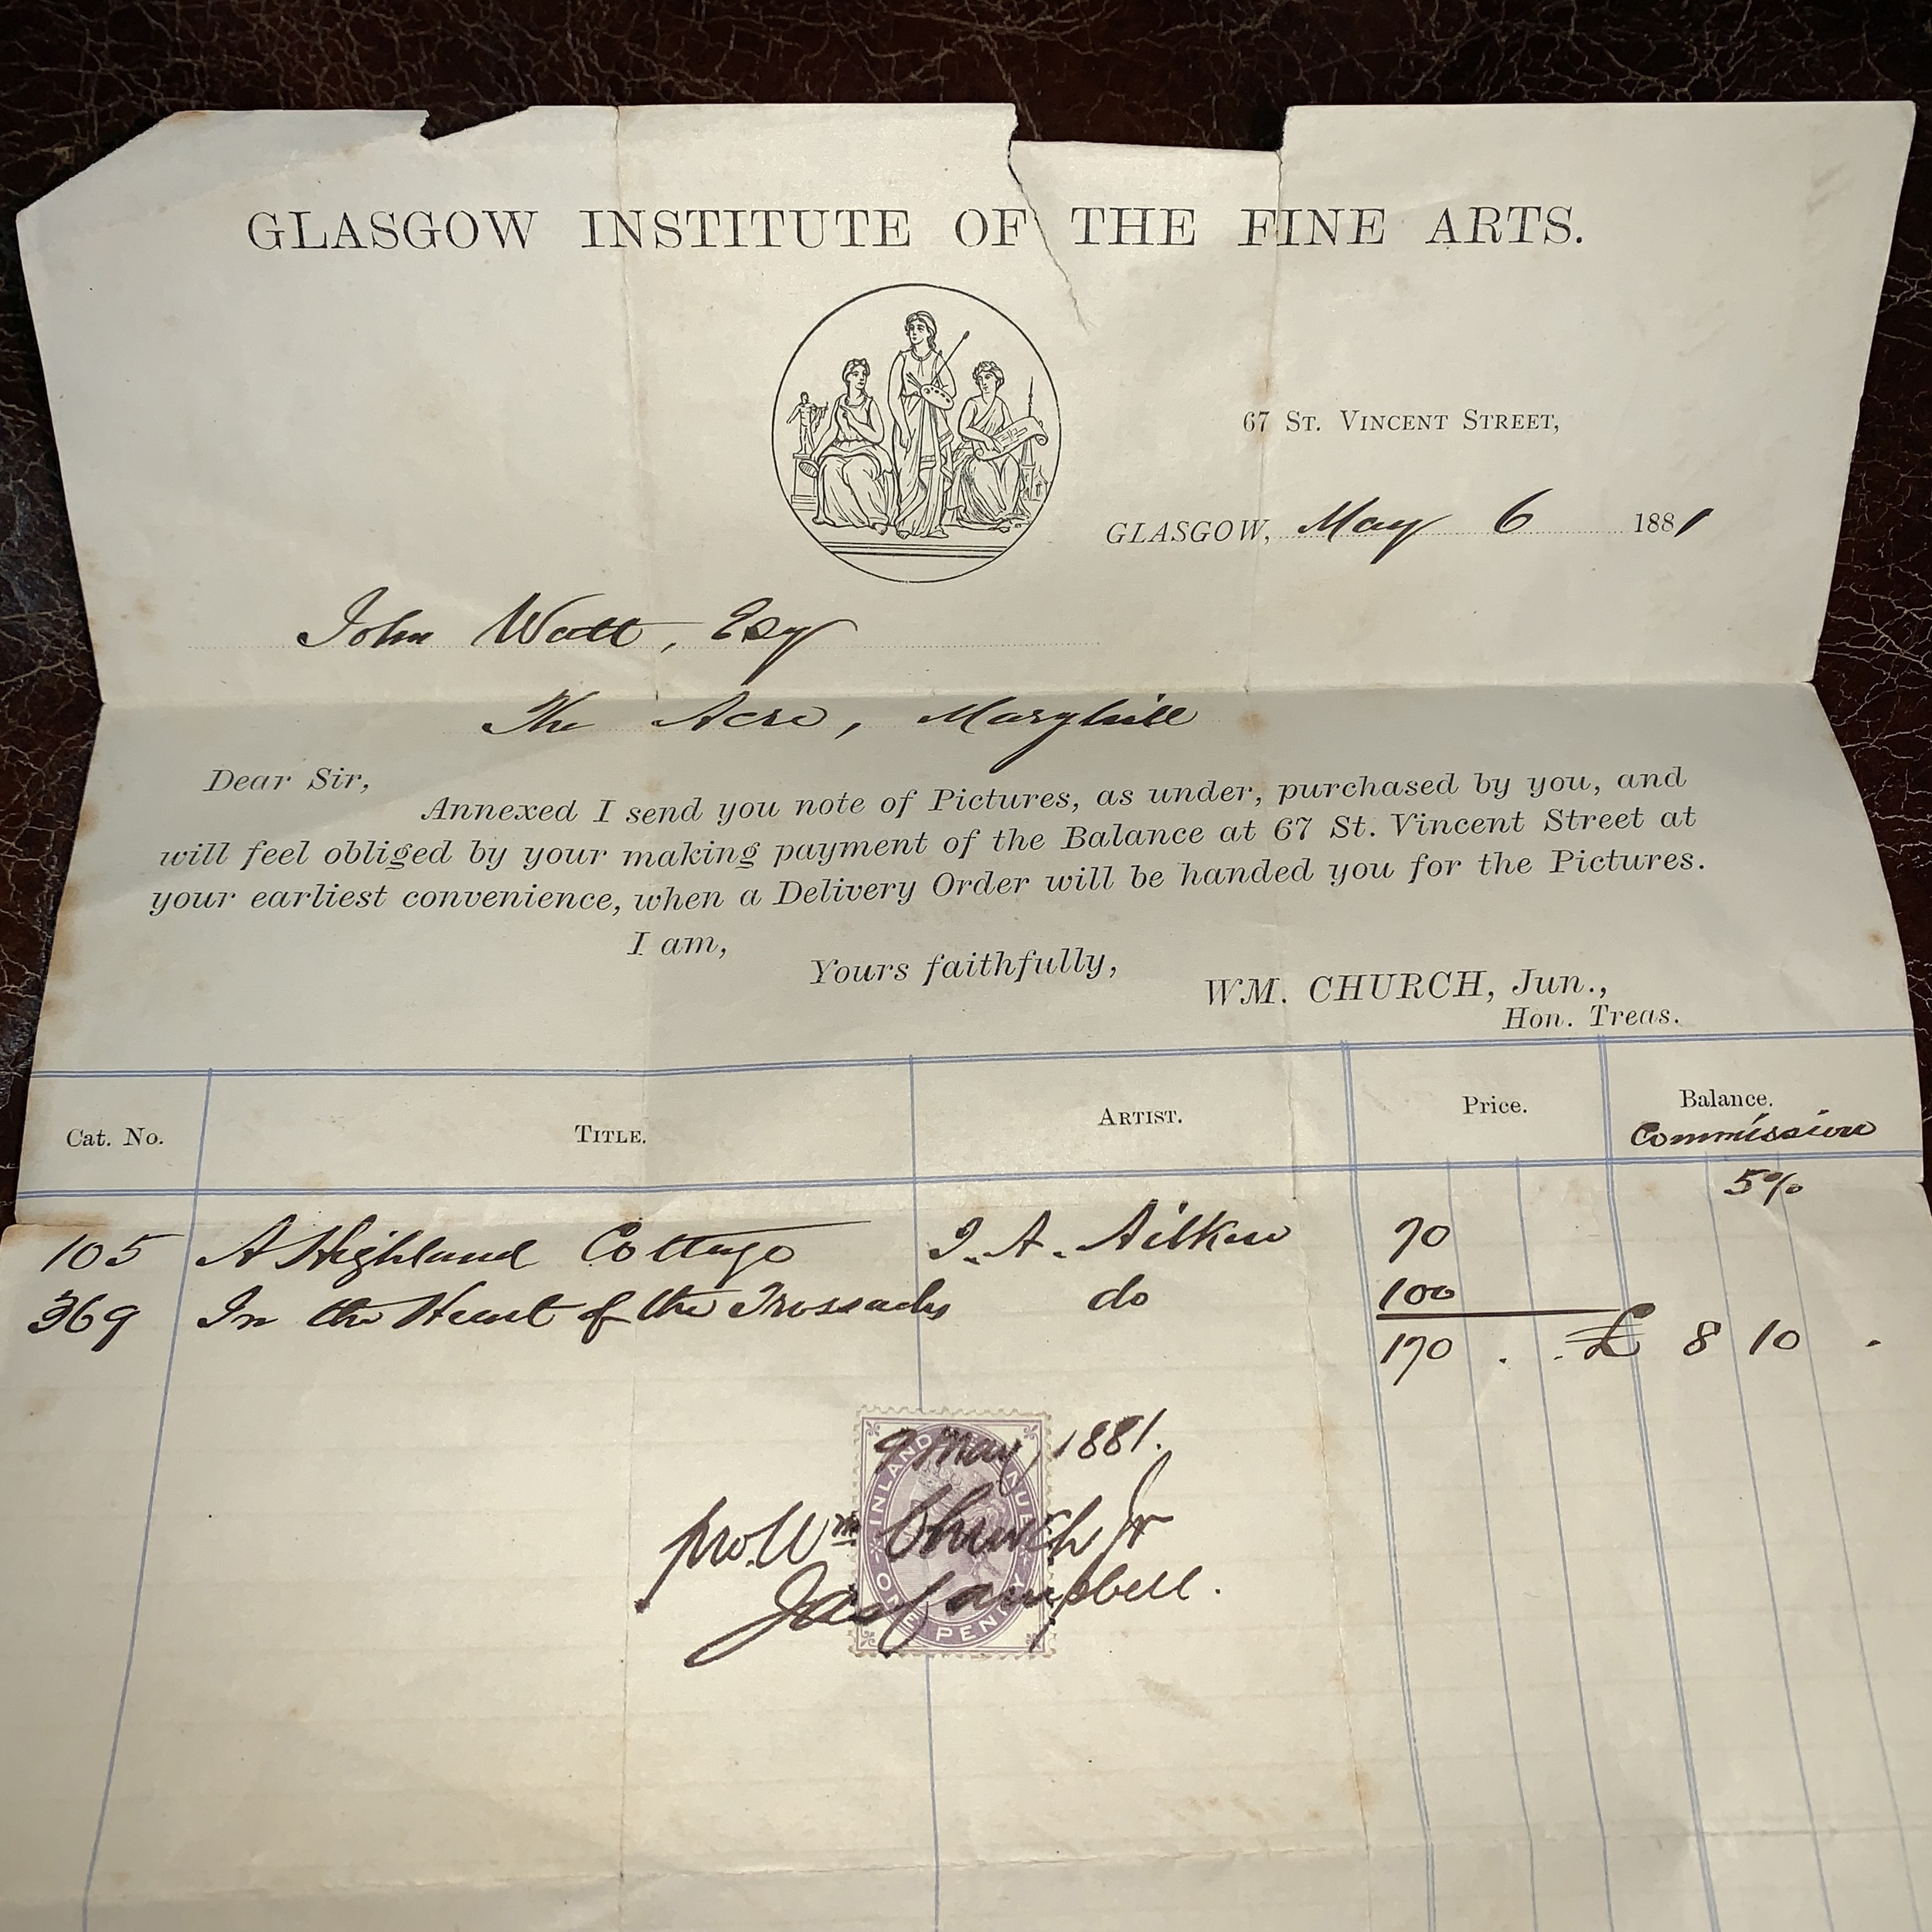 GLASGOW INSTITUTE OF THE FINE ARTS.
67 ST. VINCENT STREET,
GLASGOW, May 6 1881
John Watt, Esq
The Acre, Maryhill
Dear Sir,
Annexed I send you note of Pictures, as under, purchased by you, and
will feel obliged by your making payment of the Balance at 67 St. Vincent Street at
your earliest convenience, when a Delivery Order will be handed you for the Pictures.
I am,
Yours faithfully,
WM. CHURCH, Jun.,
Hon. Treas.
Cat. No. TITLE. ARTIST. Price. Balance.
Commission
5%
105 A Highland Cottage J. A. Aitken 70
369 In the Heart of the Trossachs do 100
170 . . £ 8 10 .
9 May 1881.
pro. Wm. Church Jr
Jas Campbell.
INLAND REVENUE
ONE PENNY